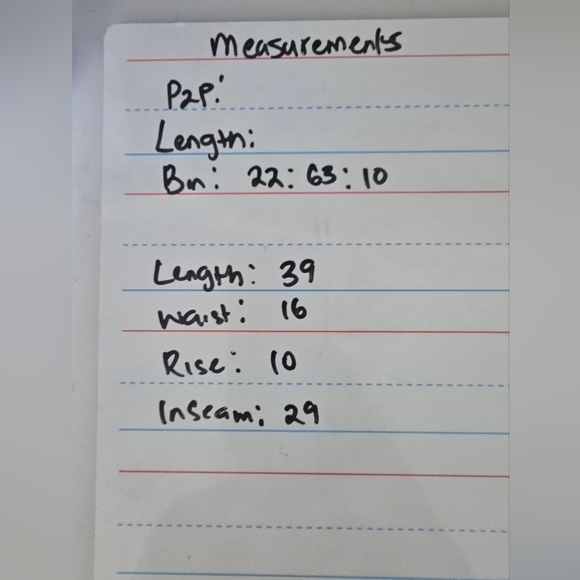 Measurements
P2P:
Length:
Bn: 22:63:10
Length: 39
Waist: 16
Rise: 10
Inseam: 29